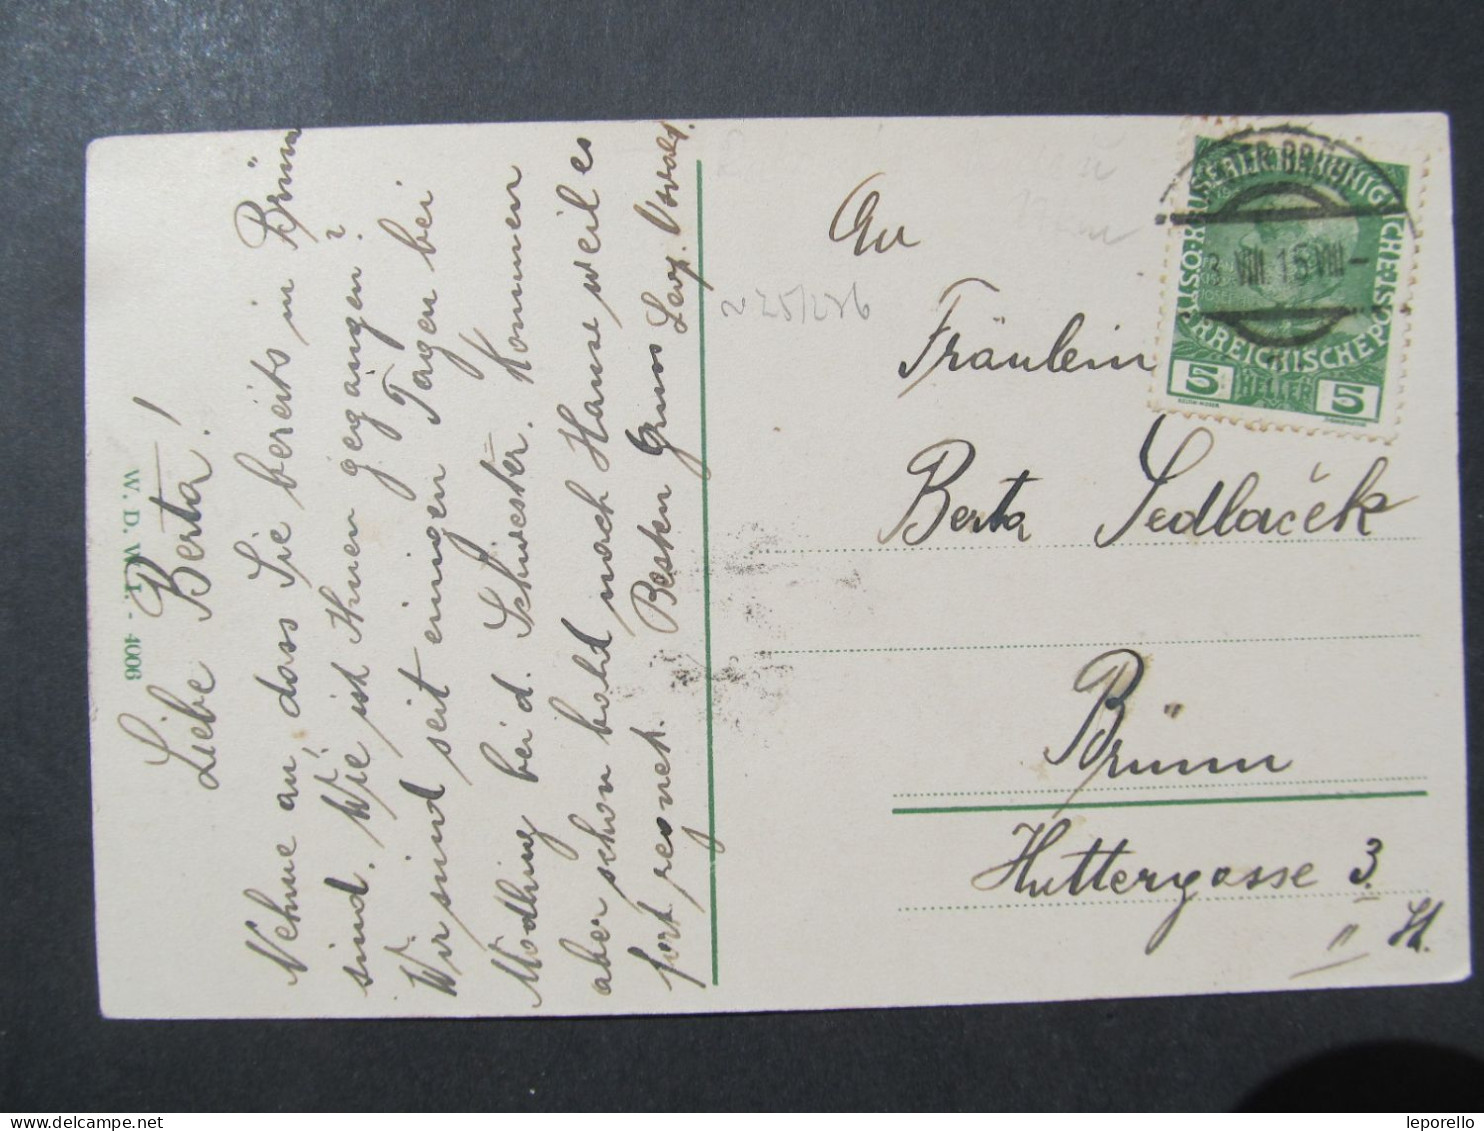 Liebe Berta!
Nehme an, dass Sie bereits in Brünn
sind. Wie ist Ihnen gegangen?
Wir sind seit einigen Tagen bei
Mödling bei d. Schwester. Kommen
aber schon bald nach Hause weil es
fort regnet. Besten Gruss
W. D. W. I. - 4006
An
Fräulein
Berta Sedlaček
Brünn
Huttergasse 3.
II St.
KAISERLICHE KÖNIGLICHE ÖSTERREICHISCHE POST
5 HELLER 5
delcampe.net
leporello